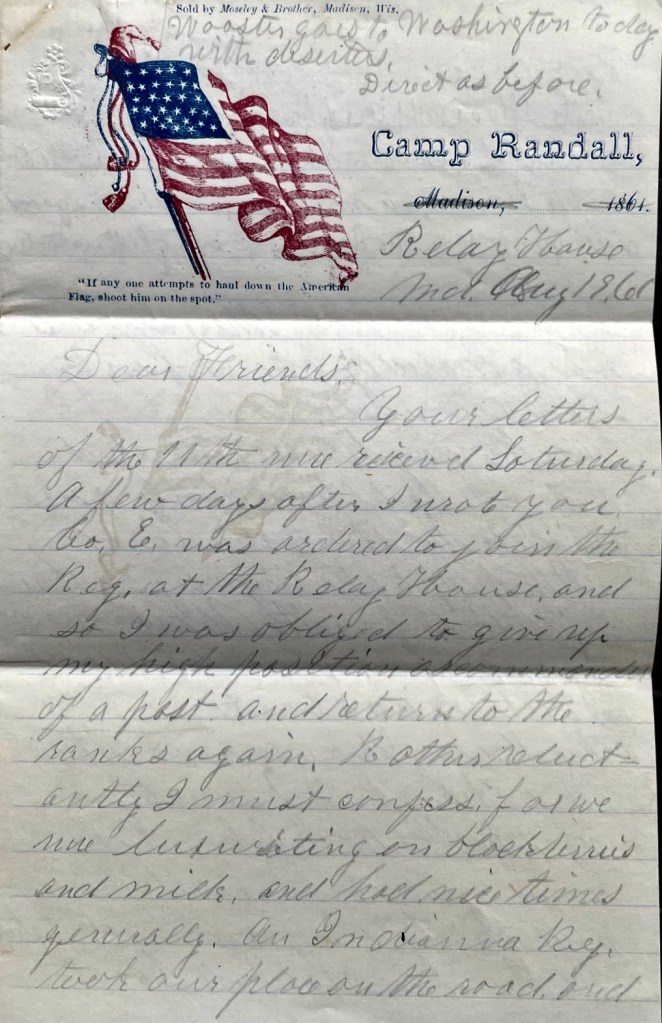 Sold by Moseley & Brother, Madison, Wis.
Wooster goes to Washington to day
with deserters.
Direct as before.
Camp Randall,
Madison, 1861.
Relay House
Md. Aug 19, 61
"If any one attempts to haul down the American
Flag, shoot him on the spot."
Dear Friends.
Your letters
of the 11th wue receivd Saturday.
A few days after I wrot you
Co. E. was ordered to join the
Reg. at the Relay House, and
so I was obliged to give up
my high position as commander
of a post. and return to the
ranks again. Rather reluct-
antly I must confess, for we
wue luxuriating on blackberries
and milk, and had nice times
generally. An Indianna Reg.
took our place on the road, and